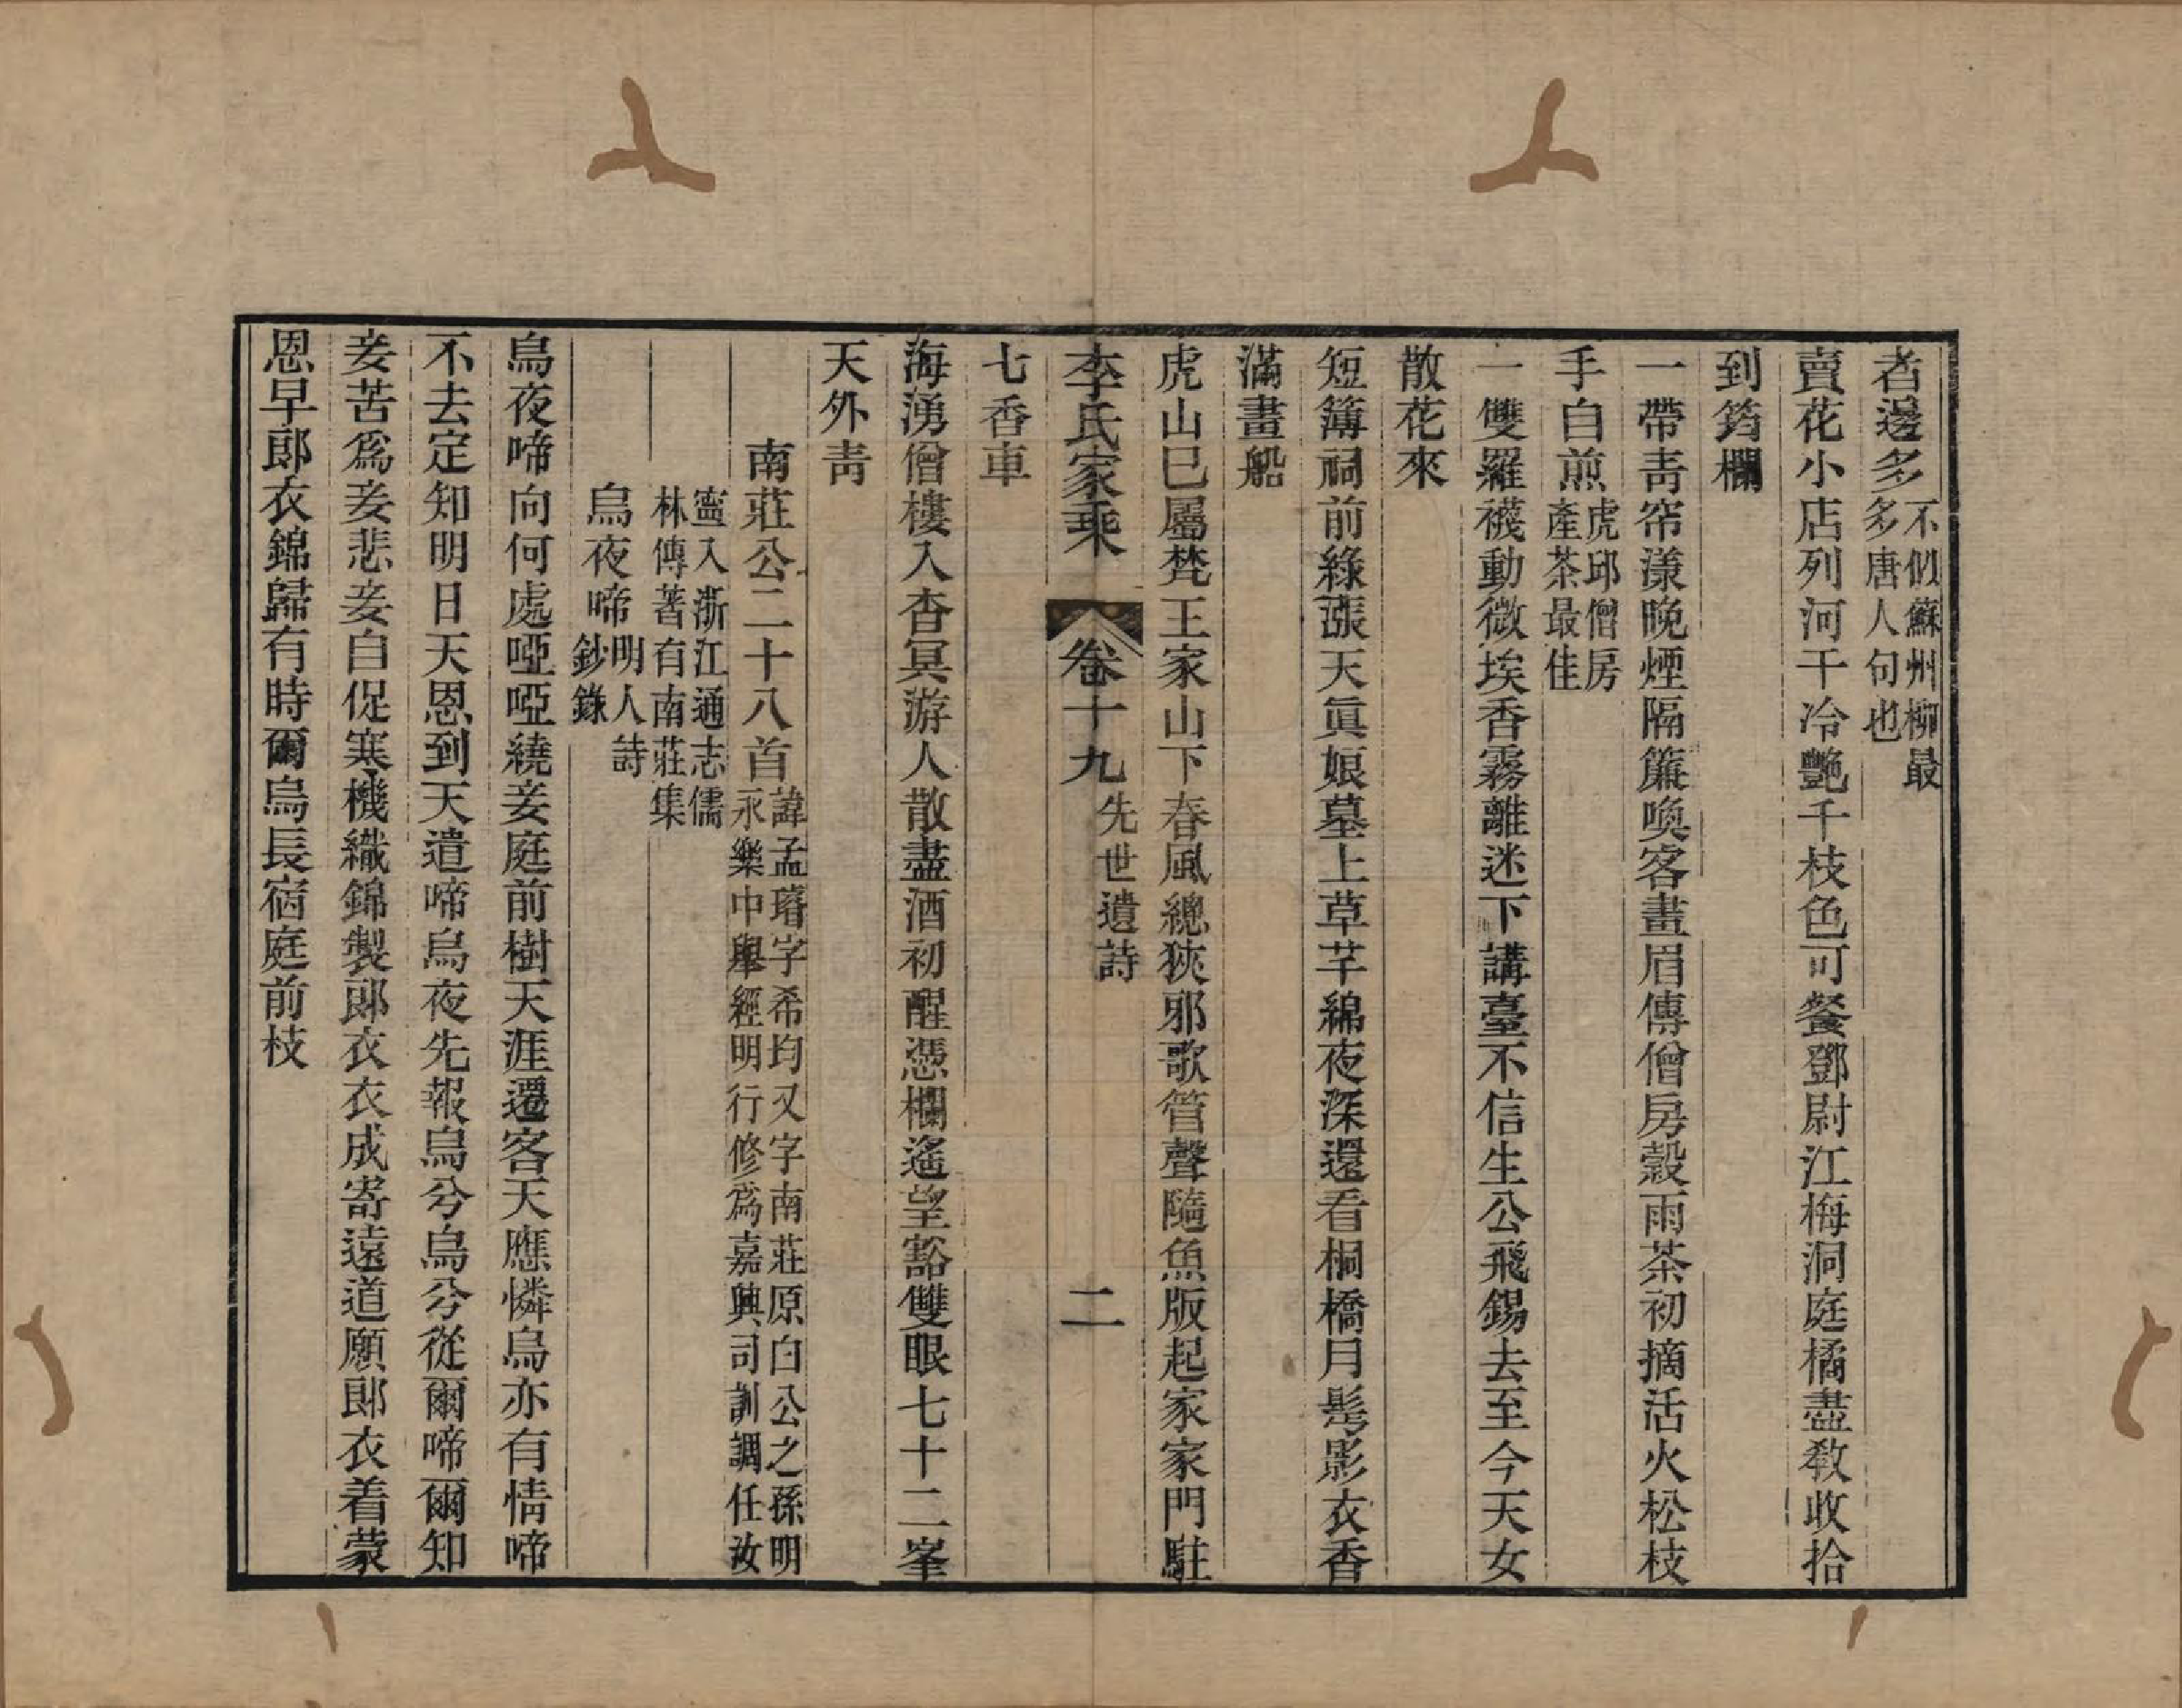 者邊多不似蘇州柳最多唐人句也
賣花小店列河干冷艷千枝色可餐鄧尉江梅洞庭橘盡敎收拾
到筠欄
一帶靑帘漾晚煙隔簾喚客畫眉傳僧房穀雨茶初摘活火松枝
手自煎虎邱僧房產茶最佳
一雙羅襪動微埃香霧離迷下講臺不信生公飛錫去至今天女
散花來
短簿祠前綠漲天眞娘墓上草芊綿夜深還看桐橋月髩影衣香
滿畫船
虎山已屬梵王家山下春風總狹邪歌管聲隨魚版起家家門駐
李氏家乘 卷十九 先世遺詩 二
七香車
海湧僧樓入杳冥游人散盡酒初醒憑欄遙望豁雙眼七十二峯
天外靑
南莊公二十八首諱孟璿字希均又字南莊原白公之孫明永樂中舉經明行修爲嘉興司訓調任汝
寧入浙江通志儒林傳著有南莊集
烏夜啼明人詩鈔錄
烏夜啼向何處啞啞繞妾庭前樹天涯遷客天應憐烏亦有情啼
不去定知明日天恩到天遣啼烏夜先報烏兮烏兮從爾啼爾知
妾苦爲妾悲妾自促寒機織錦製郞衣衣成寄遠道願郞衣着蒙
恩早郞衣錦歸有時爾烏長宿庭前枝